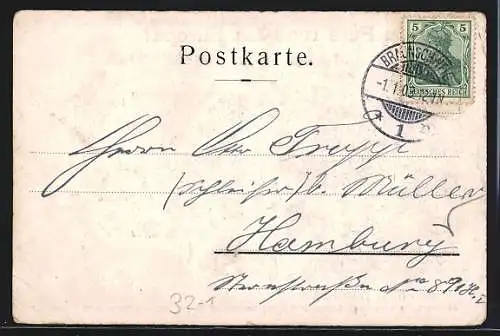 Postkarte.
5
5
DEUTSCHES REICH
BRAUNSCHWEIG
1
Herrn Otto Tropp
(Schleifer) b. Müller
Hamburg
No 89
32-1